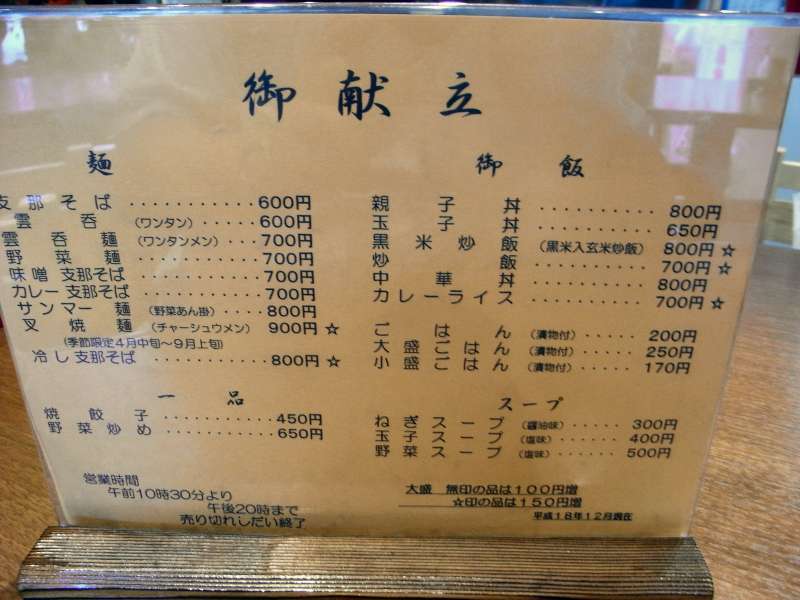 御献立
麺
支那そば ············ 600円
雲呑 (ワンタン) ····· 600円
雲呑麺 (ワンタンメン) ··· 700円
野菜麺 ············ 700円
味噌 支那そば ··········· 700円
カレー支那そば ··········· 700円
サンマー麺 (野菜あん掛) ···· 800円
叉焼麺 (チャーシュウメン) 900円 ☆
(季節限定4月中旬〜9月上旬)
冷し支那そば ············ 800円 ☆
一品
焼餃子 ············ 450円
野菜炒め ············ 650円
営業時間
午前10時30分より
午後20時まで
売り切れしだい終了
御飯
親子丼 ··········· 800円
玉子丼 ··········· 650円
黒米炒飯 (黒米入玄米炒飯) 800円 ☆
炒飯 ··········· 700円 ☆
中華丼 ··········· 800円
カレーライス ··········· 700円 ☆
ごはん (漬物付) ····· 200円
大盛ごはん (漬物付) ····· 250円
小盛ごはん (漬物付) ····· 170円
スープ
ねぎスープ (醤油味) ····· 300円
玉子スープ (塩味) ····· 400円
野菜スープ (塩味) ····· 500円
大盛 無印の品は100円増
☆印の品は150円増
平成18年12月現在